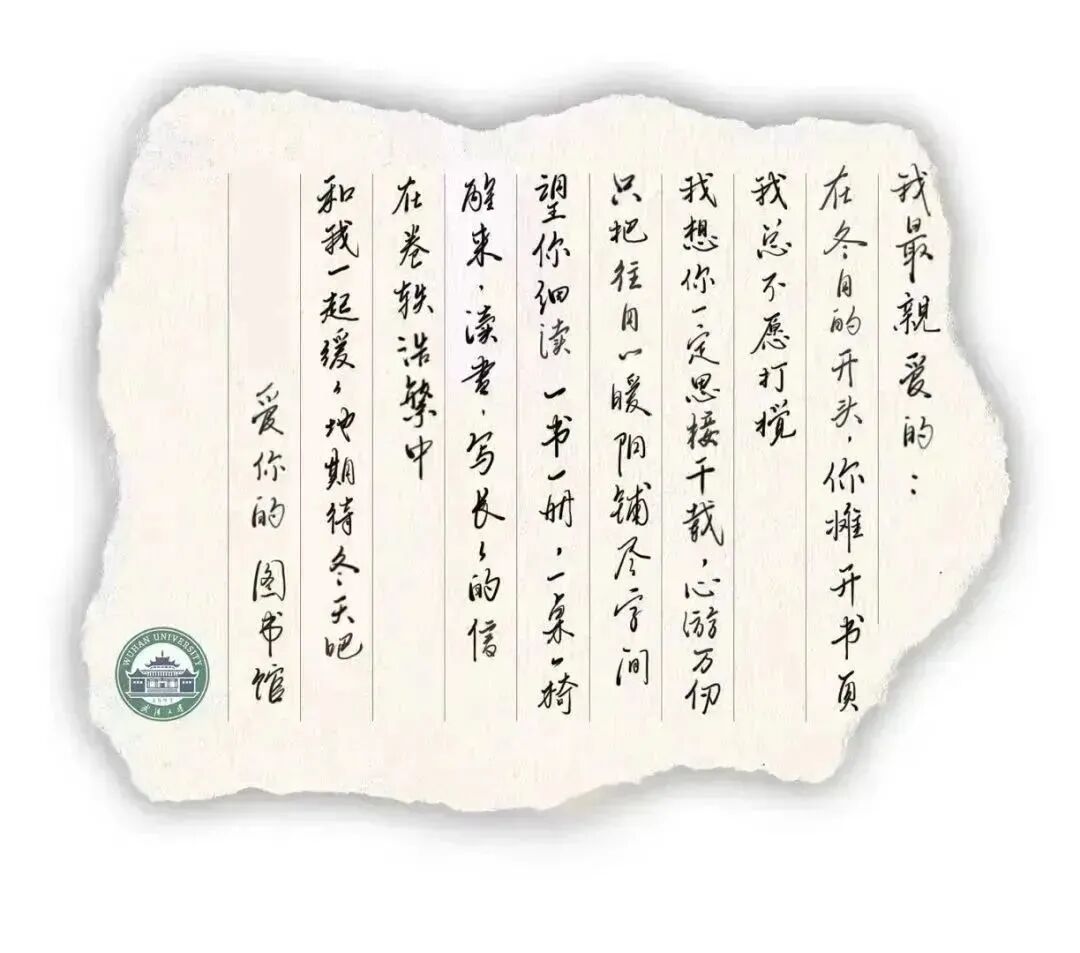 我最亲爱的：
在冬日的开头，你摊开书页
我总不愿打搅
我想你一定思接千载，心游万仞
只把往日的暖阳铺尽字间
望你细读一书一册，一桌一椅
醒来，读书，写长长的信
在卷轶浩繁中
和我一起缓缓地期待冬天吧
爱你的 图书馆
WUHAN UNIVERSITY
1893
武汉大学